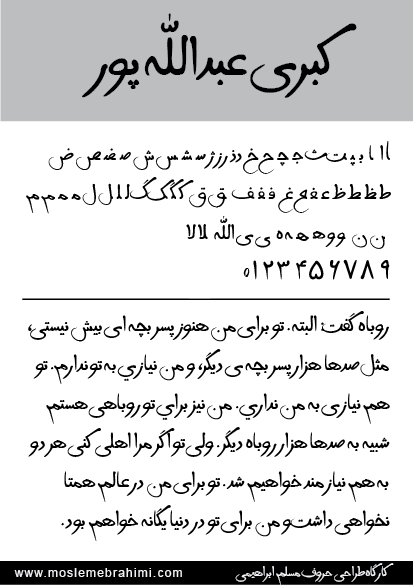 کبری عبدالله پور
ااابپپتثجچحخدذرزژسشسشصضصض
طظطظعغعغفففققکگکگلللممم
ننووهههیی الله لالا
۰۱۲۳۴۵۶۷۸۹
روباه گفت: البته. تو برای من هنوز پسر بچه ای بیش نیستی،
مثل صدها هزار پسر بچه ی دیگر، و من نیازي به تو ندارم. تو
هم نیازی به من نداري. من نیز براي تو روباهی هستم
شبیه به صدها هزار روباه دیگر. ولی تو اگر مرا اهلی کنی هر دو
به هم نیازمند خواهیم شد. تو برای من در عالم همتا
نخواهی داشت و من برای تو در دنیا یگانه خواهم بود.
www.moslemebrahimi.com کارگاه طراحی حروف مسلم ابراهیمی